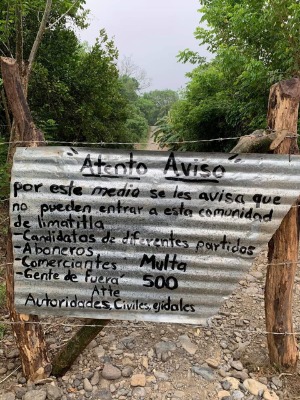 "Atento Aviso"
por este medio se les avisa que
no pueden entrar a esta comunidad
de limatitla
- Candidatos de diferentes partidos
- Aboneros
- Comerciantes Multa
- Gente de fuera 500
Atte
Autoridades, Civiles, ejidales